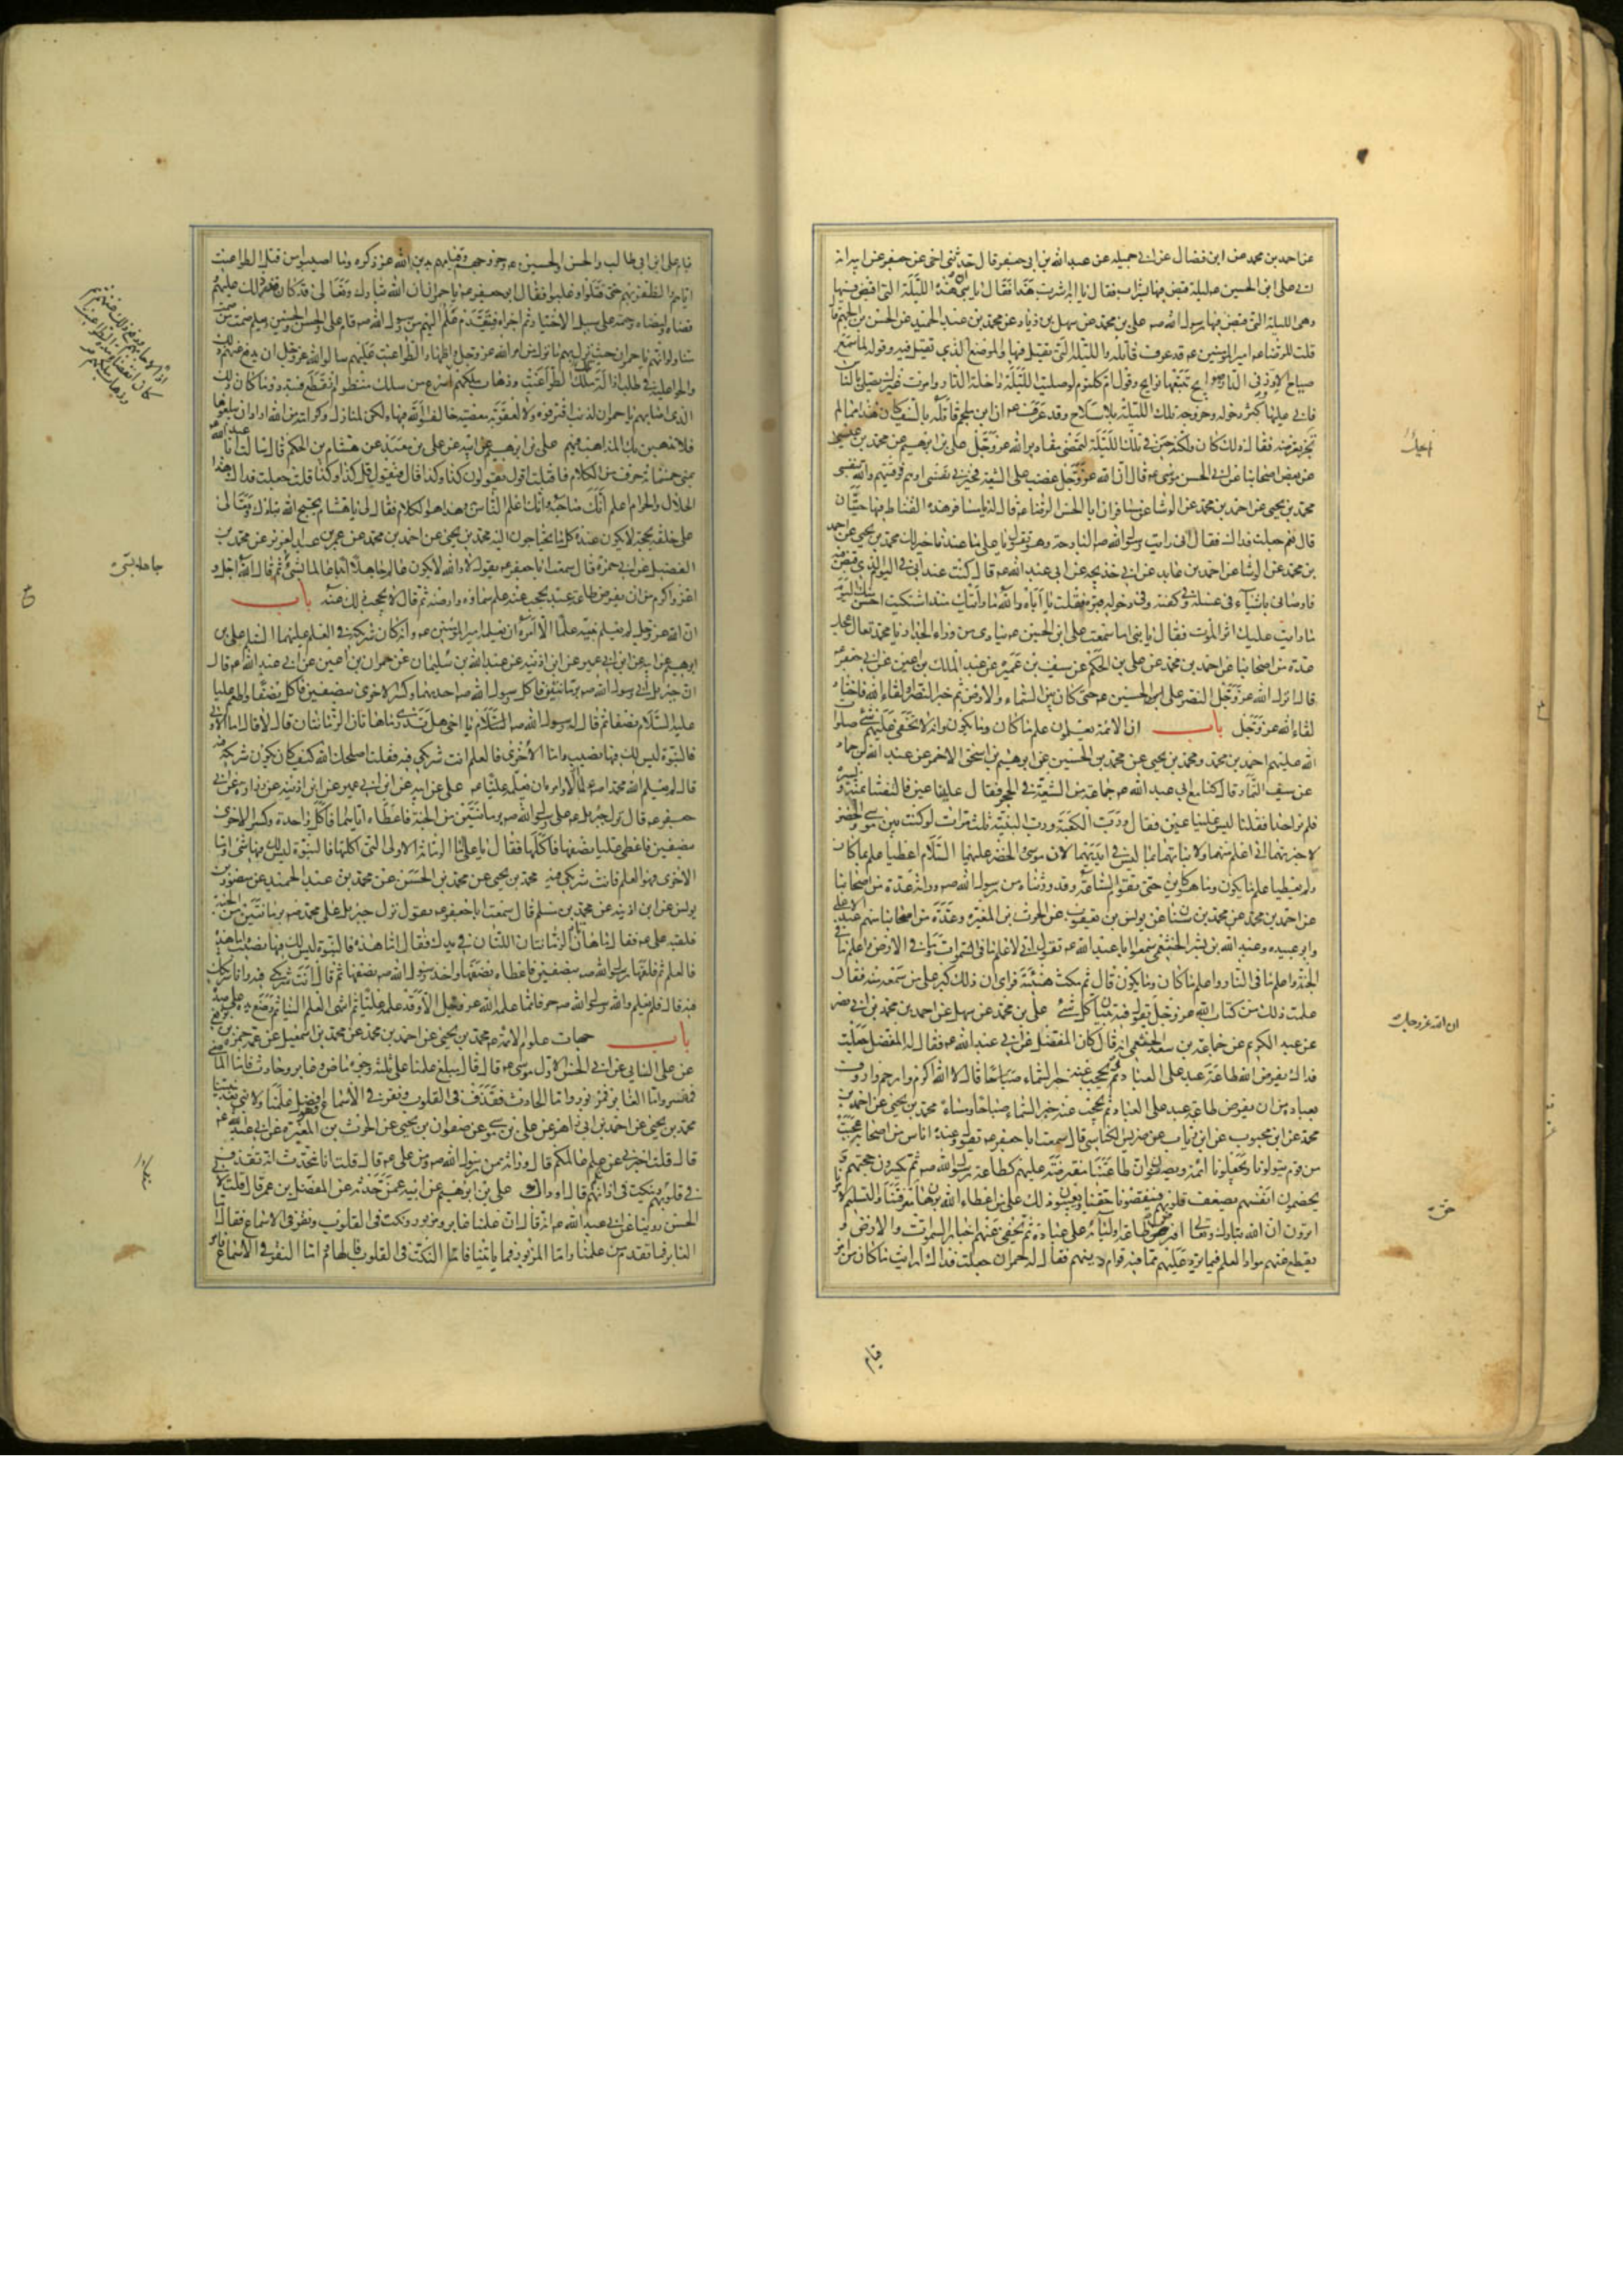 عن احمد بن محمد عن ابن فضال عن ابى جميله عن عبدالله بن ابى جعفر قال حدثنى اخى عن جعفر عن ابيه انه
اتى على ابن الحسين عه ليلة قبض فيها بشراب فقال يا ابه اشرب هذا فقال يا بنى ان هذه الليلة التى اقبض فيها
وهى الليلة التى قبض فيها رسول الله صه على بن محمد عن سهل بن زياد عن محمد بن عبد الحميد عن الحسن بن الجهم قال
قلت للرضا عه ان امير المؤمنين عه قد عرف قاتله والليلة التى يقتل فيها والموضع الذى يقتل فيه وقوله لما سمع
صياح الاوز فى الدار صوايح تتبعها نوايح وقول ام كلثوم لو صليت الليلة داخل الدار وامرت غيرك يصلى بالناس
فابى عليها وكثر دخوله وخروجه تلك الليلة بلا سلاح وقد عرف عه ان ابن ملجم قاتله بالسيف كان هذا مما لم
يجز تعرضه فقال ذلك كان ولكنه خير فى تلك الليلة لتمضى مقادير الله عز وجل على بن ابرهيم عن محمد بن عيسى
عن بعض اصحابنا عن ابى الحسن موسى عه قال ان الله عز وجل غضب على الشيعة فخيرنى نفسى او هم فوقيتهم والله بنفسى
محمد بن يحيى عن احمد بن محمد عن الوشا عن مسافر ان ابا الحسن الرضا عه قال له يا مسافر هذه القناة فيها حيتان
قال نعم جعلت فداك فقال انى رايت رسول الله صه البارحة وهو يقول يا على ما عندنا خير لك محمد بن يحيى عن احمد
بن محمد عن الوشا عن احمد بن عايد عن ابى خديجه عن ابى عبد الله عه قال كنت عند ابى فى اليوم الذى قبض فيه
فاوصانى باشياء فى غسله وفى كفنه وفى دخوله قبره فقلت يا اباه والله ما رايتك منذ اشتكيت احسن منك اليوم
ما رايت عليك اثر الموت فقال يا بنى اما سمعت على ابن الحسين عه ينادى من وراء الجدار يا محمد تعال عجل
عدة من اصحابنا عن احمد بن محمد عن على بن الحكم عن سيف بن عميرة عن عبد الملك بن اعين عن ابى جعفر عه
قال انزل الله عز وجل النصر على الحسين عه حتى كان بين السماء والارض ثم خير النصر او لقاء الله فاختار
لقاء الله عز وجل باب ان الائمة يعلمون علم ما كان وما يكون وانه لا يخفى عليهم شئ صلوات
الله عليهم احمد بن محمد ومحمد بن يحيى عن محمد بن الحسين عن ابرهيم بن اسحق الاحمر عن عبد الله بن حماد
عن سيف التمار قال كنا مع ابى عبد الله عه جماعة من الشيعة فى الحجر فقال علينا عين فالتفتنا يمنة ويسرة
فلم نر احدا فقلنا ليس علينا عين فقال ورب الكعبة ورب البنية ثلث مرات لو كنت بين موسى والخضر
لاخبرتهما انى اعلم منهما ولانباتهما بما ليس فى ايديهما لان موسى والخضر عليهما السلام اعطيا علم ما كان
ولم يعطيا علم ما يكون وما هو كاين حتى تقوم الساعة وقد ورثناه من رسول الله صه وراثة عدة من اصحابنا
عن احمد بن محمد عن محمد بن سنان عن يونس بن يعقوب عن الحرث بن المغيرة وعدة من اصحابنا منهم عبد الاعلى
وابو عبيدة وعبد الله بن بشر الخثعمى سمعوا ابا عبد الله عه يقول انى لاعلم ما فى السموات وما فى الارض واعلم ما فى
الجنة واعلم ما فى النار واعلم ما كان وما يكون قال ثم مكث هنيئة فراى ان ذلك كبر على من سمعه منه فقال
علمت ذلك من كتاب الله عز وجل يقول فيه تبيان كل شئ على بن محمد عن سهل عن احمد بن محمد بن ابى نصر
عن عبد الكريم عن جماعة بن سعد الخثعمى انه قال كان المفضل عن ابى عبد الله عه فقال له المفضل جعلت
فداك يفرض الله طاعة عبد على العباد ثم يحجب عنه خبر السماء صباحا قال لا الله اكرم وارحم واروف
بعباده من ان يفرض طاعة عبد على العباد ثم يحجب عنه خبر السماء صباحا ومساء محمد بن يحيى عن احمد بن
محمد عن ابن محبوب عن ابن رياب عن ضريس الكناسى قال سمعت ابا جعفر عه يقول وعنده اناس من اصحابه عجبت
من قوم يتولونا ويجعلونا ائمة ويصفون ان طاعتنا مفترضة عليهم كطاعة رسول الله صه ثم يكسرون حجتهم و
يخصمون انفسهم بضعف قلوبهم فينقصونا حقنا ويعيبون ذلك على من اعطاه الله برهان حق معرفتنا والتسليم لامرنا
اترون ان الله تبارك وتعالى افترض طاعة اوليائه على عباده ثم يخفى عنهم اخبار السموات والارض و
يقطع عنهم مواد العلم فيما يرد عليهم مما فيه قوام دينهم فقال له حمران جعلت فداك ارايت ما كان من امر
قيام
ان الله عز وجل
قيام على ابن ابى طالب والحسن والحسين عه وخروجهم وقيامهم بدين الله عز ذكره وما اصيبوا من قتل الطواغيت
اياهم والظفر بهم حتى قتلوا وغلبوا فقال ابو جعفر عه يا حمران ان الله تبارك وتعالى قد كان قدر ذلك عليهم
وقضاه وامضاه وحتمه على سبيل الاختيار ثم اجراه فبتقدم علم اليهم من رسول الله صه قام على والحسن والحسين وبعلم صمت من صمت
منا ولو انهم يا حمران حيث نزل بهم ما نزل من امر الله عز وجل واظهار الطواغيت عليهم سالوا الله عز وجل ان يدفع عنهم ذلك
والحوا عليه فى طلب ازالة ملك الطواغيت وذهاب ملكهم اسرع من سلك منظوم انقطع فتبدد وما كان ذلك
الذى اصابهم يا حمران لذنب اقترفوه ولا لعقوبة معصيه خالفوا الله فيها ولكن لمنازل وكرامة من الله اراد ان يبلغوها
فلا تذهبن بك المذاهب فيهم على بن ابرهيم عن ابيه عن على بن معبد عن هشام بن الحكم قال سالت ابا عبد الله عه
بمنى عن خمسمائة حرف من الكلام فاقبلت اقول يقولون كذا وكذا قال فيقول قل كذا وكذا قلت جعلت فداك هذا
الحلال والحرام اعلم انك صاحبه وانك اعلم الناس به وهذا هو الكلام فقال لى يا هشام يحتج الله تبارك وتعالى
على خلقه بحجة لا يكون عنده كل ما يحتاجون اليه محمد بن يحيى عن احمد بن محمد عن عمر بن عبد العزيز عن محمد بن
الفضيل عن ابى حمزة قال سمعت ابا جعفر عه يقول لا والله لا يكون عالم جاهلا ابدا عالما بشئ ثم قال الله اجل و
اعز واكرم من ان يفرض طاعة عبد يحجب عنه علم سمائه وارضه ثم قال لا يحجب ذلك عنه باب
ان الله عز وجل لم يعلم نبيه علما الا امره ان يعلمه امير المؤمنين عه وانه كان شريكه فى العلم عليهما السلم على بن
ابرهيم عن ابيه عن ابن ابى عمير عن ابن اذينه عن عبد الله بن سليمان عن حمران بن اعين عن ابى عبد الله عه قال
ان جبرئيل اتى رسول الله صه برمانتين فاكل رسول الله صه احديهما وكسر الاخرى بنصفين فاكل نصفا واطعم عليا
عليه السلام نصفا ثم قال له رسول الله صه يا اخى هل تدرى ما هاتان الرمانتان قال لا قال اما الاولى
فالنبوة ليس لك فيها نصيب واما الاخرى فالعلم انت شريكى فيه فقلت اصلحك الله كيف كان يكون شريكه فيه
قال لم يعلم الله محمدا صه علما الا وامره ان يعلمه عليا عه على عن ابيه عن ابن ابى عمير عن ابن اذينه عن زرارة عن ابى
جعفر عه قال نزل جبرئيل عه على رسول الله صه برمانتين من الجنة فاعطاه اياهما فاكل واحدة وكسر الاخرى
بنصفين فاعطى عليا نصفها فاكلها فقال يا على اما الرمانة الاولى التى اكلتها فالنبوة ليس لك فيها شئ واما
الاخرى فهو العلم فانت شريكى فيه محمد بن يحيى عن محمد بن الحسن عن محمد بن عبد الحميد عن منصور بن
يونس عن ابن اذينه عن محمد بن مسلم قال سمعت ابا جعفر عه يقول نزل جبرئيل على محمد صه برمانتين من الجنة
فلقيه على عه فقال ما هاتان الرمانتان اللتان فى يدك فقال اما هذه فالنبوة ليس لك فيها نصيب واما هذه
فالعلم ثم فلقها رسول الله صه بنصفين فاعطاه نصفها واخذ رسول الله صه نصفها ثم قال انت شريكى فيه وانا شريكك
فيه قال فلم يعلم والله رسول الله صه حرفا مما علمه الله عز وجل الا وقد علمه عليا ثم انتهى العلم الينا ثم وضع يده على صدره
باب جهات علوم الائمة عه محمد بن يحيى عن احمد بن محمد عن محمد بن اسمعيل عن عمه حمزة بن بزيع
عن على السايى عن ابى الحسن الاول موسى عه قال قال مبلغ علمنا على ثلثة وجوه ماض وغابر وحادث فاما الماضى
فمفسر واما الغابر فمزبور واما الحادث فقذف فى القلوب ونقر فى الاسماع وهو افضل علمنا ولا نبى بعد نبينا
محمد بن يحيى عن احمد بن ابى زاهر عن على بن موسى عن صفوان بن يحيى عن الحرث بن المغيرة عن ابى عبد الله عه
قال قلت اخبرنى عن علم عالمكم قال وراثة من رسول الله صه ومن على عه قال قلت انا نتحدث انه يقذف
فى قلوبهم وينكت فى اذانهم قال او ذاك على بن ابرهيم عن ابيه عمن حدثه عن المفضل بن عمر قال قلت لابى
الحسن روينا عن ابى عبد الله عه انه قال ان علمنا غابر ومزبور ونكت فى القلوب ونقر فى الاسماع فقال اما
الغابر فما تقدم من علمنا واما المزبور فما ياتينا فاما النكت فى القلوب فالهام واما النقر فى الاسماع فامر
جاهلا بشئ